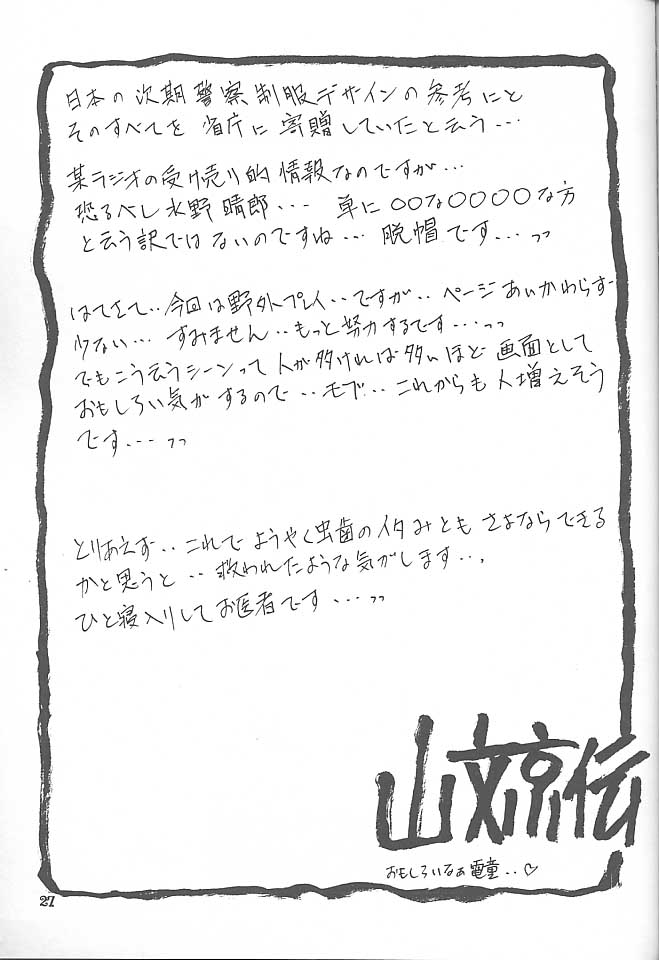 日本の次期警察制服デザインの参考にと
そのすべてを省庁に寄贈していたと云う…
某ラジオの受け売り的情報なのですが…
恐るべし水野晴郎… 単に○○な○○○○な方
と云う訳ではないのですね… 脱帽です…っっ
はてさて‥今回は野外プレイ‥ですが‥ページあいかわらず
少ない… すみません‥もっと努力するです…っっ
でもこう云うシーンって人が多ければ多いほど画面として
おもしろい気がするので‥モブ…これからも人増えそう
です…っっ
とりあえず‥これでようやく虫歯のイタみともさよならできる
かと思うと‥救われたような気がします‥,
ひと寝入りしてお医者です…っっ
山文京伝
おもしろいなぁ電童‥♡
27